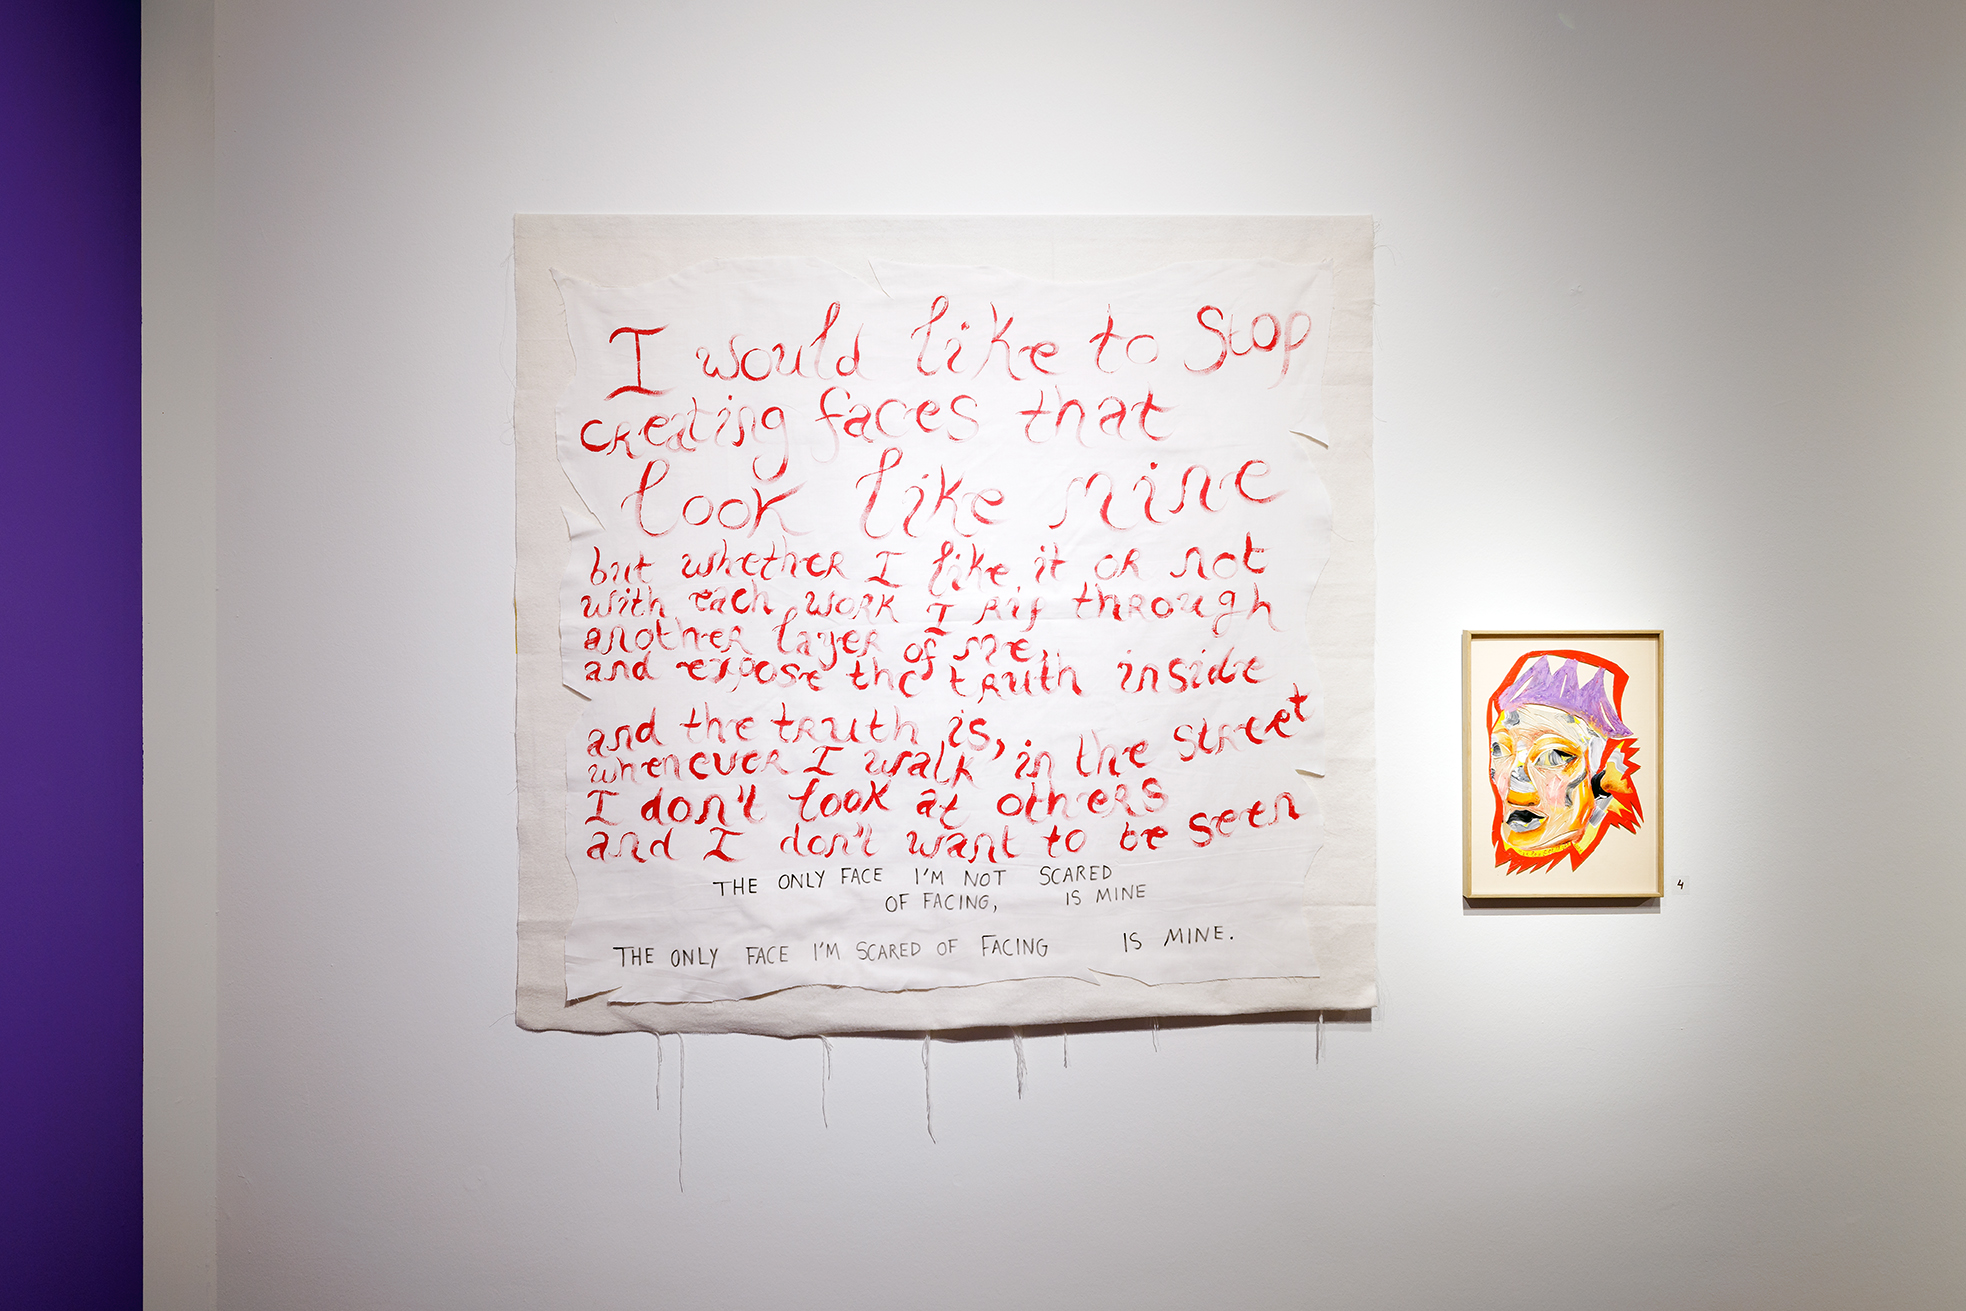 I would like to Stop
creating faces that
look like mine
but whether I like it or not
with each work I rip through
another layer of me,
and expose the truth inside
and the truth is,
whenever I walk in the street
I don't look at others
and I don't want to be seen
THE ONLY FACE I'M NOT SCARED
OF FACING, IS MINE
THE ONLY FACE I'M SCARED OF FACING IS MINE.
4